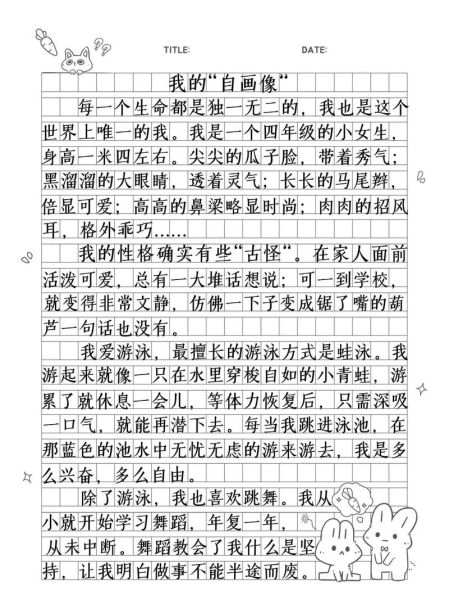 TITLE: DATE:
我的“自画像“
每一个生命都是独一无二的，我也是这个
世界上唯一的我。我是一个四年级的小女生，
身高一米四左右。尖尖的瓜子脸，带着秀气；
黑溜溜的大眼睛，透着灵气；长长的马尾辫，
倍显可爱；高高的鼻梁略显时尚；肉肉的招风
耳，格外乖巧……
我的性格确实有些“古怪”。在家人面前
活泼可爱，总有一大堆话想说；可一到学校，
就变得非常文静，仿佛一下子变成锯了嘴的葫
芦一句话也没有。
我爱游泳，最擅长的游泳方式是蛙泳。我
游起来就像一只在水里穿梭自如的小青蛙，游
累了就休息一会儿，等体力恢复后，只需深吸
一口气，就能再潜下去。每当我跳进泳池，在
那蓝色的池水中无忧无虑的游来游去，我是多
么兴奋，多么自由。
除了游泳，我也喜欢跳舞。我从
小就开始学习舞蹈，年复一年，
从未中断。舞蹈教会了我什么是坚
持，让我明白做事不能半途而废。